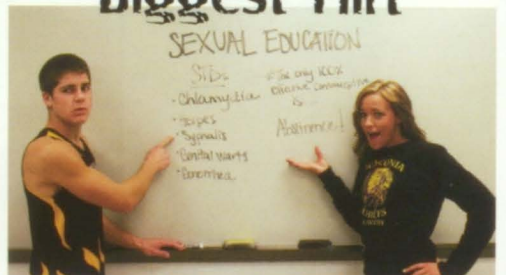 Biggest Flirt
SEXUAL EDUCATION
STDs
· Chlamydia
· Herpes
· Syphalis
· Genital Warts
· Gonorrhea
The only 100%
effective contraceptive
is...
Abstinence!